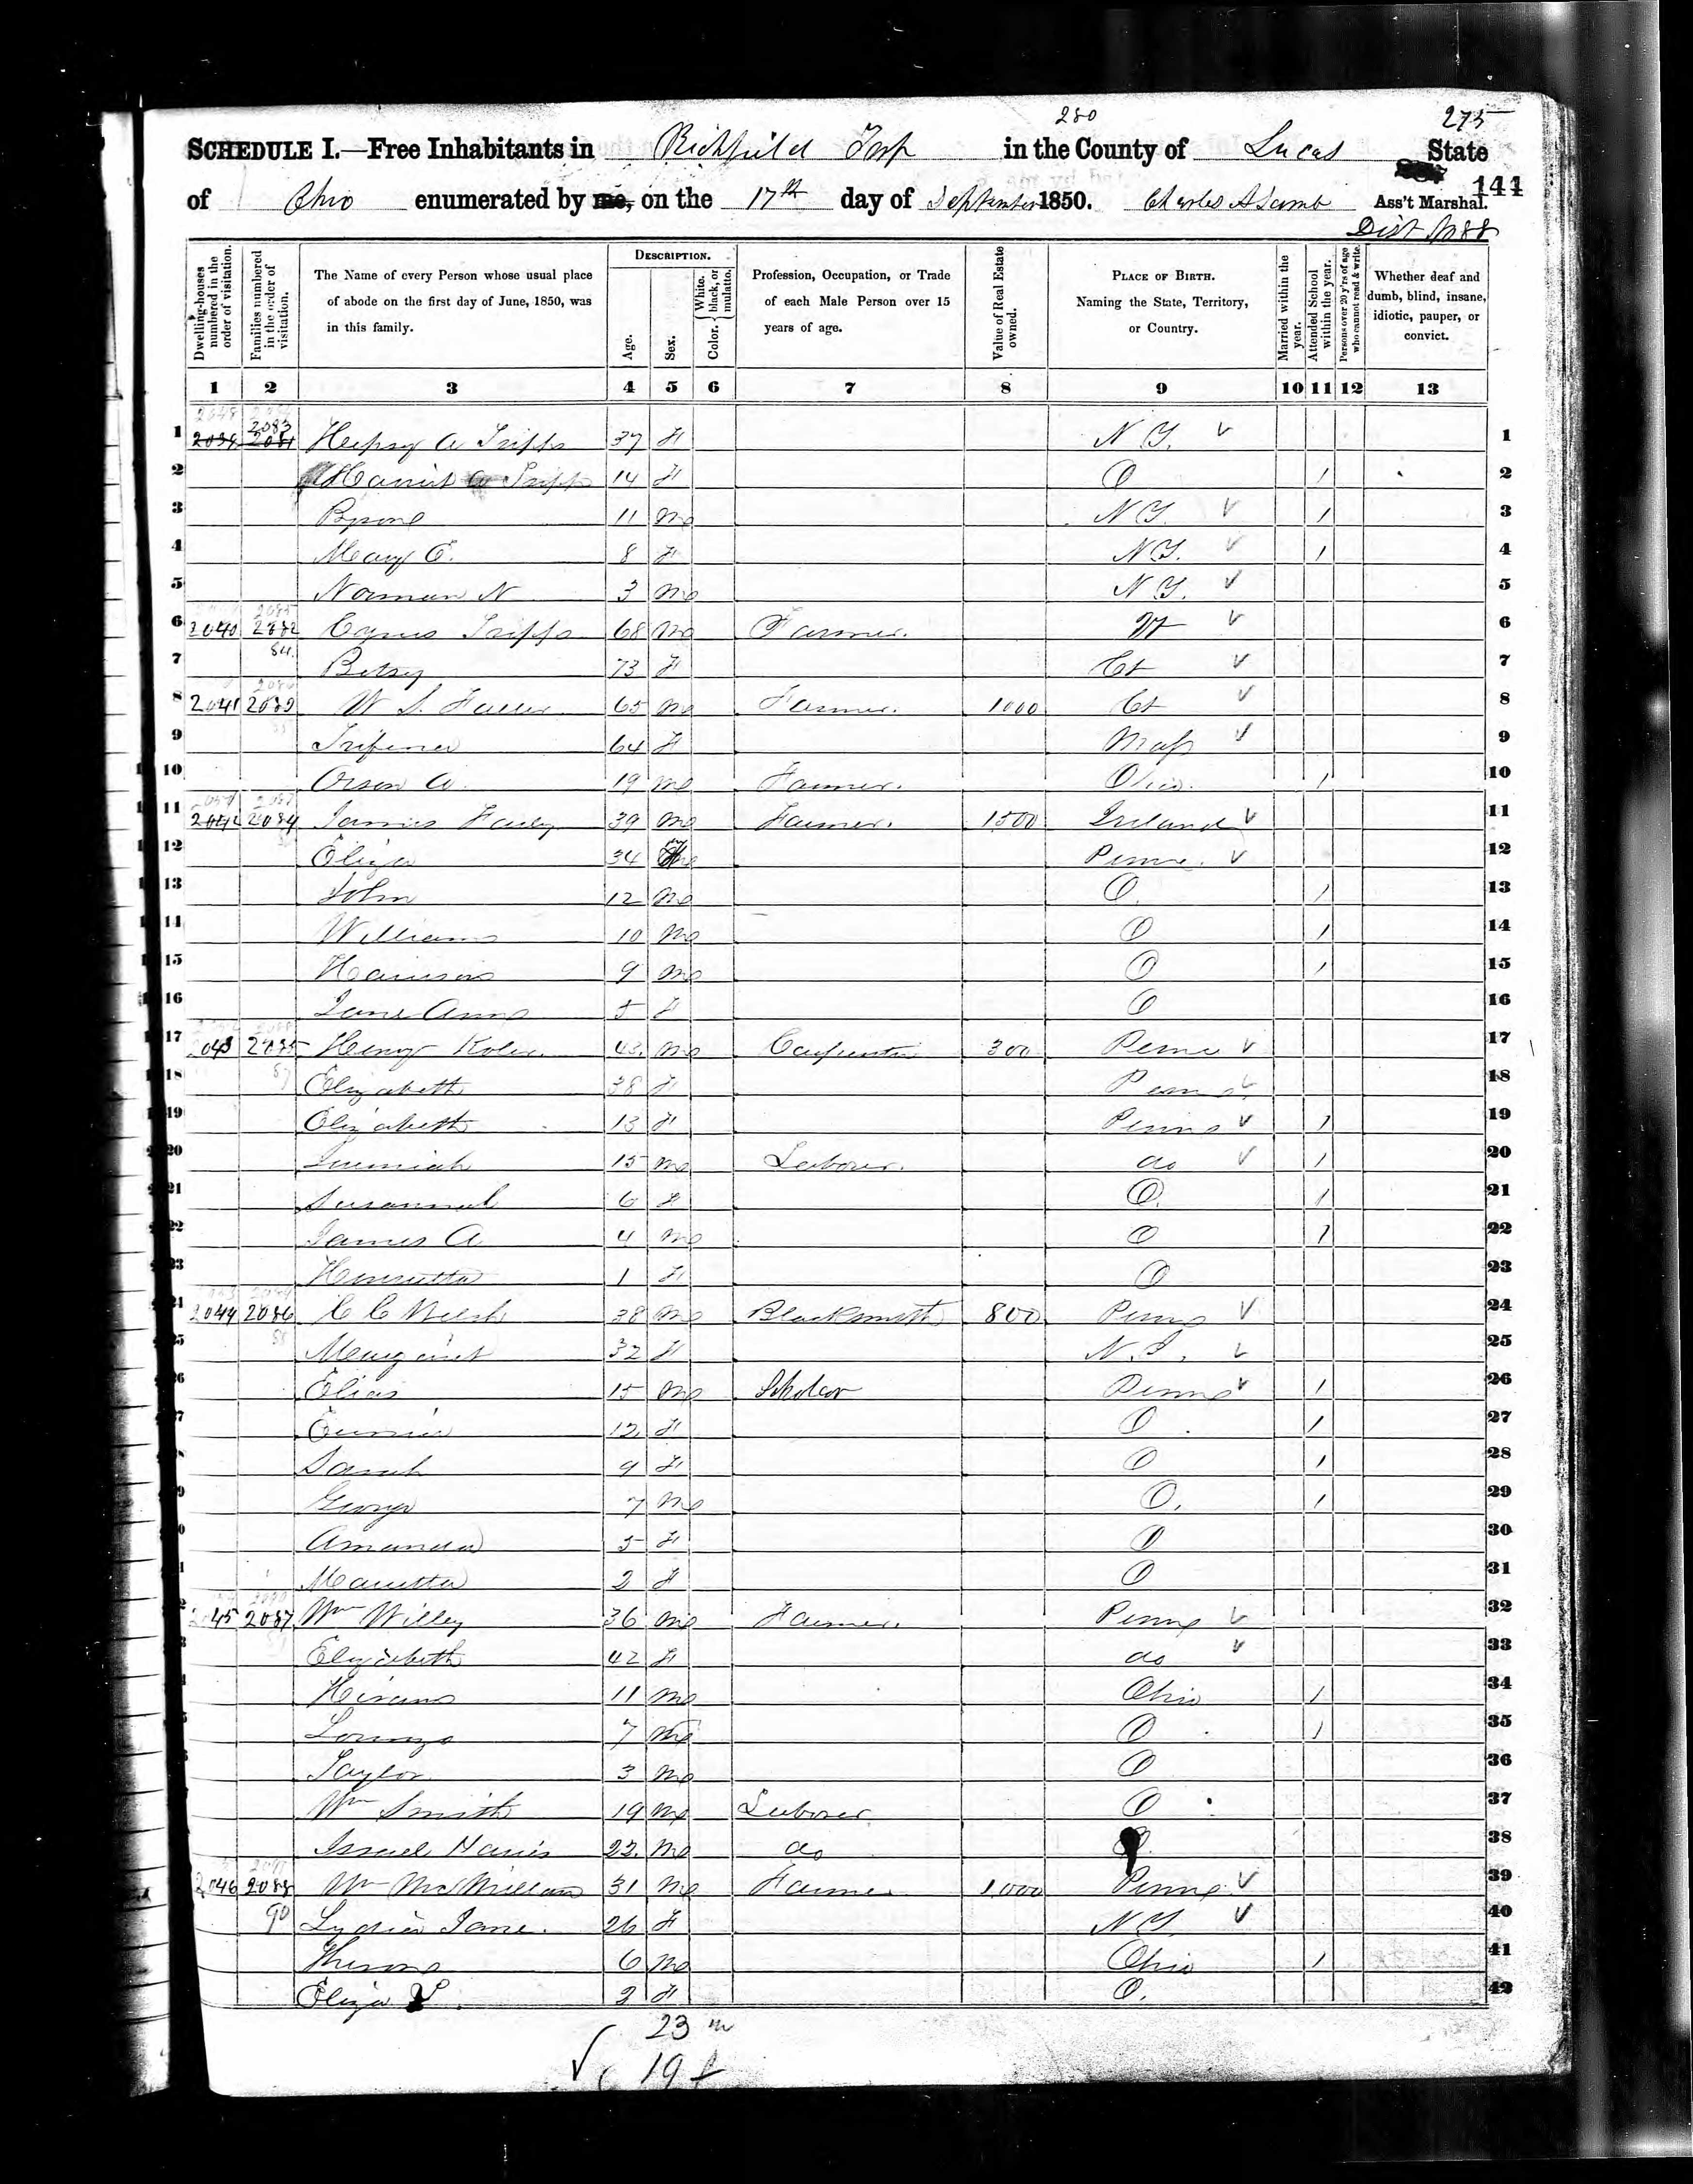 280
275
SCHEDULE I.—Free Inhabitants in Richfield Twp in the County of Lucas State
144
of Ohio enumerated by me, on the 17th day of September 1850. Charles A Lamb Ass't Marshal.
Dist No 88
Dwelling-houses numbered in the order of visitation.
Families numbered in the order of visitation.
The Name of every Person whose usual place of abode on the first day of June, 1850, was in this family.
DESCRIPTION.
Age.
Sex.
Color. White, black, or mulatto.
Profession, Occupation, or Trade of each Male Person over 15 years of age.
Value of Real Estate owned.
PLACE OF BIRTH. Naming the State, Territory, or Country.
Married within the year.
Attended School within the year.
Persons over 20 y'rs of age who cannot read & write.
Whether deaf and dumb, blind, insane, idiotic, pauper, or convict.
1 2 3 4 5 6 7 8 9 10 11 12 13
1 2083 A Tripp 37 F N Y. 1
2 Harriet Tripp 14 F O 1 2
3 11 M N Y. 1 3
4 Mary E. 8 F N Y. 1 4
5 Norman N 3 M N Y. 5
6 2040 84 Cyrus Tripp 68 M Farmer. Vt 6
7 Betsy 73 F Ct 7
8 2041 W S. Fuller 65 M Farmer. 1000 Ct 8
9 64 F Mass 9
10 Orson W. 19 M Farmer. Ohio. 1 10
11 2084 James 39 M Farmer. 1500 Ireland 11
12 Eliza 34 F Penn. 12
13 John 12 M O. 1 13
14 William 10 M O 1 14
15 Harrison 9 M O 1 15
16 Jane Ann 5 F O 16
17 2085 Henry 43. M Carpenter 300 Penn 17
18 Elizabeth 38 F Penn 18
19 Elizabeth 13 F Penn 1 19
20 Jeremiah 15 M Laborer. do 1 20
21 Susannah 6 F O. 1 21
22 James A 4 M O 1 22
23 Henrietta 1 F O 23
2044 2086 C C Welsh 38 M Blacksmith 800 Penn 24
Margaret 32 F N. J. 25
Elias 15 M Scholar Penn 1 26
12 F O 1 27
Sarah 9 F O 1 28
George 7 M O. 1 29
Amanda 5 F O 30
Marietta 2 F O 31
2045 2087 Wm Willey 36 M Farmer. Penn 32
Elizabeth 42 F do 33
Hiram 11 M Ohio 1 34
Lorenzo 7 M O 1 35
Taylor 3 M O 36
Wm Smith 19 M Laborer O 37
Israel Harris 22. M do 38
2046 2088 Wm McMillan 31 M Farmer 1000 Penn 39
90 Lydia Jane. 26 F N Y. 40
Theron 6 M Ohio 1 41
Eliza 2 F O. 42
23 m
19 f